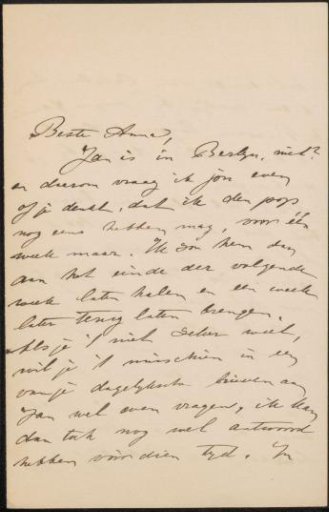 Beste Anna,
Jan is in Berlyn, niet?
en daarom vraag ik jou even
of je denkt, dat ik den pop
nog eens hebben mag, voor één
week maar. Ik zou hem dan
aan het einde der volgende
week laten halen en een week
later terug laten brengen.
Als je 't niet zeker weet,
wil je 't misschien in een
van je dagelyksche brieven aan
Jan wel even vragen, ik kan
dan toch nog wel antwoord
hebben vóór dien tyd. In